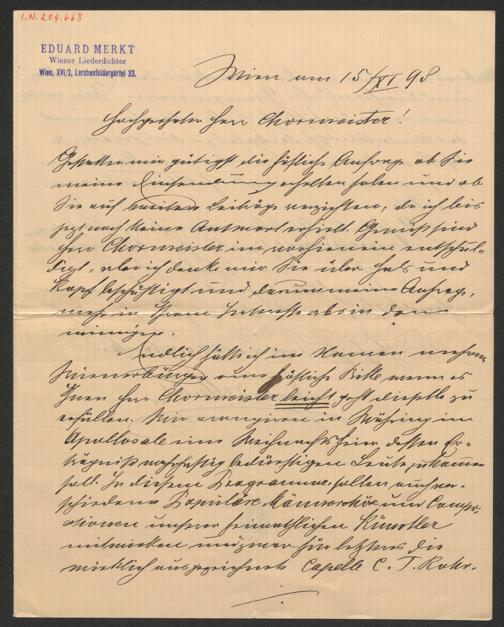 I.N. 204.668
EDUARD MERKT
Wiener Liederdichter
Wien, XVI/2, Lerchenfeldergürtel 33.
Wien am 15/XI 98
Hochgeehrter Herr Chormeister!
Gestatten mir gütigst die höfliche Anfrage ob Sie
meine Einsendung erhalten haben und ob
Sie auf weitere Beiträge verzichten, da ich bis
jetzt noch keine Antwort erhielt. Gewiß sind
Herr Chormeister im vorhinein entschul-
digt, aber ich denke mir Sie über Hals und
Kopf beschäftigt und darum meine Anfrage,
mehr in Ihrem Interesse als in dem
meinigen.
Endlich hätte ich im Namen mehrerer
Wienerbürger eine höfliche Bitte wenn es
Ihnen Herr Chormeister leicht geht dieselbe zu
erfüllen. Wir arrangieren in Währing im
Apollosale eine Weihnachtsfeier dessen Er-
trägniß wahrhaftig bedürftigen Leute zukommen
soll. In diesem Programme sollen auch ver-
schiedene Populäre Männerchöre und Compo-
sitionen unserer heimathlichen Künstler
mitwirken und zwar für letzteres die
wirklich ausgezeichnete Capelle C. T. Rohr.